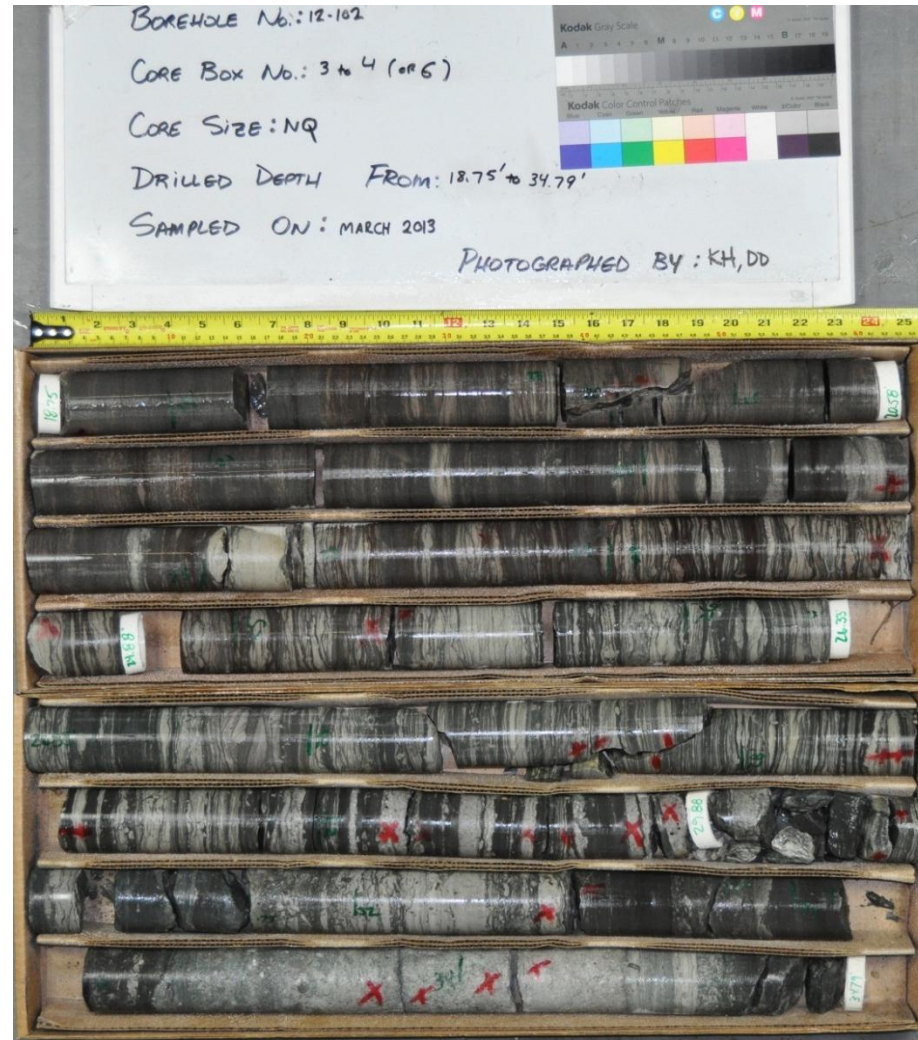 BOREHOLE No.: 12-102
CORE BOX No.: 3 to 4 (OF 6)
CORE SIZE: NQ
DRILLED DEPTH FROM: 18.75' to 34.79'
SAMPLED ON: MARCH 2013
PHOTOGRAPHED BY: KH, DD
Kodak Gray Scale
C Y M
A 1 2 3 4 5 6 M 8 9 10 11 12 13 14 15 B 17 18 19
Kodak Color Control Patches
Blue Cyan Green Yellow Red Magenta White 3/Color Black
1 2 3 4 5 6 7 8 9 10 11 12 13 14 15 16 17 18 19 20 21 22 23 24 25
18.75
20.58
24.88
26.33
29.88
34'
34.79